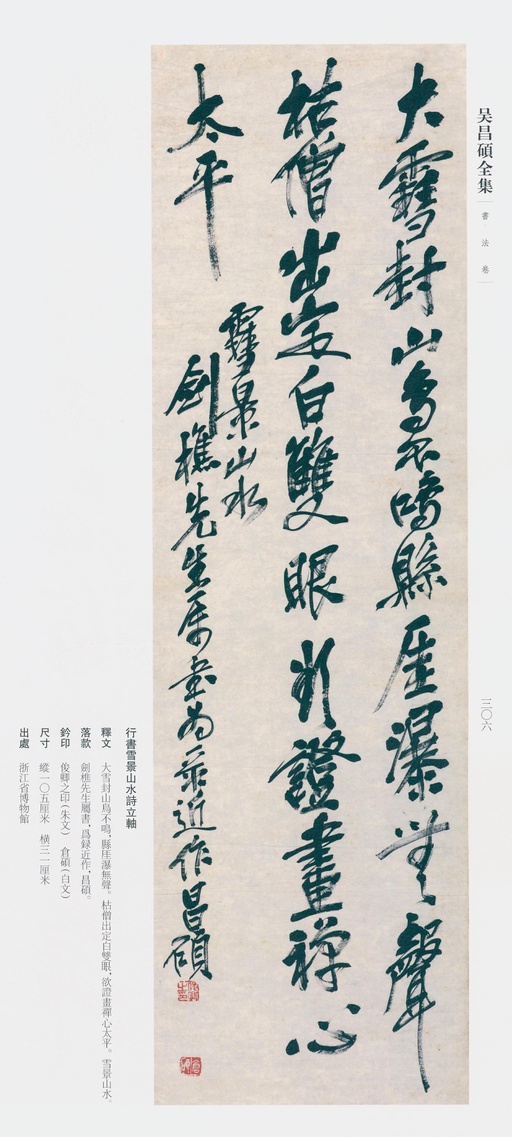 吴昌碩全集
書法卷
三〇六
大雪封山鳥不鳴縣厓瀑無聲
枯僧出定白雙眼欲證畫禪心
太平
雪景山水
劍樵先生屬書為录近作昌碩
俊卿之印
倉碩
行書雪景山水詩立軸
釋文 大雪封山鳥不鳴,縣厓瀑無聲。枯僧出定白雙眼,欲證畫禪心太平。雪景山水。
落款 劍樵先生屬書,爲録近作,昌碩。
鈐印 俊卿之印(朱文) 倉碩(白文)
尺寸 縱一〇五厘米 橫三一厘米
出處 浙江省博物館